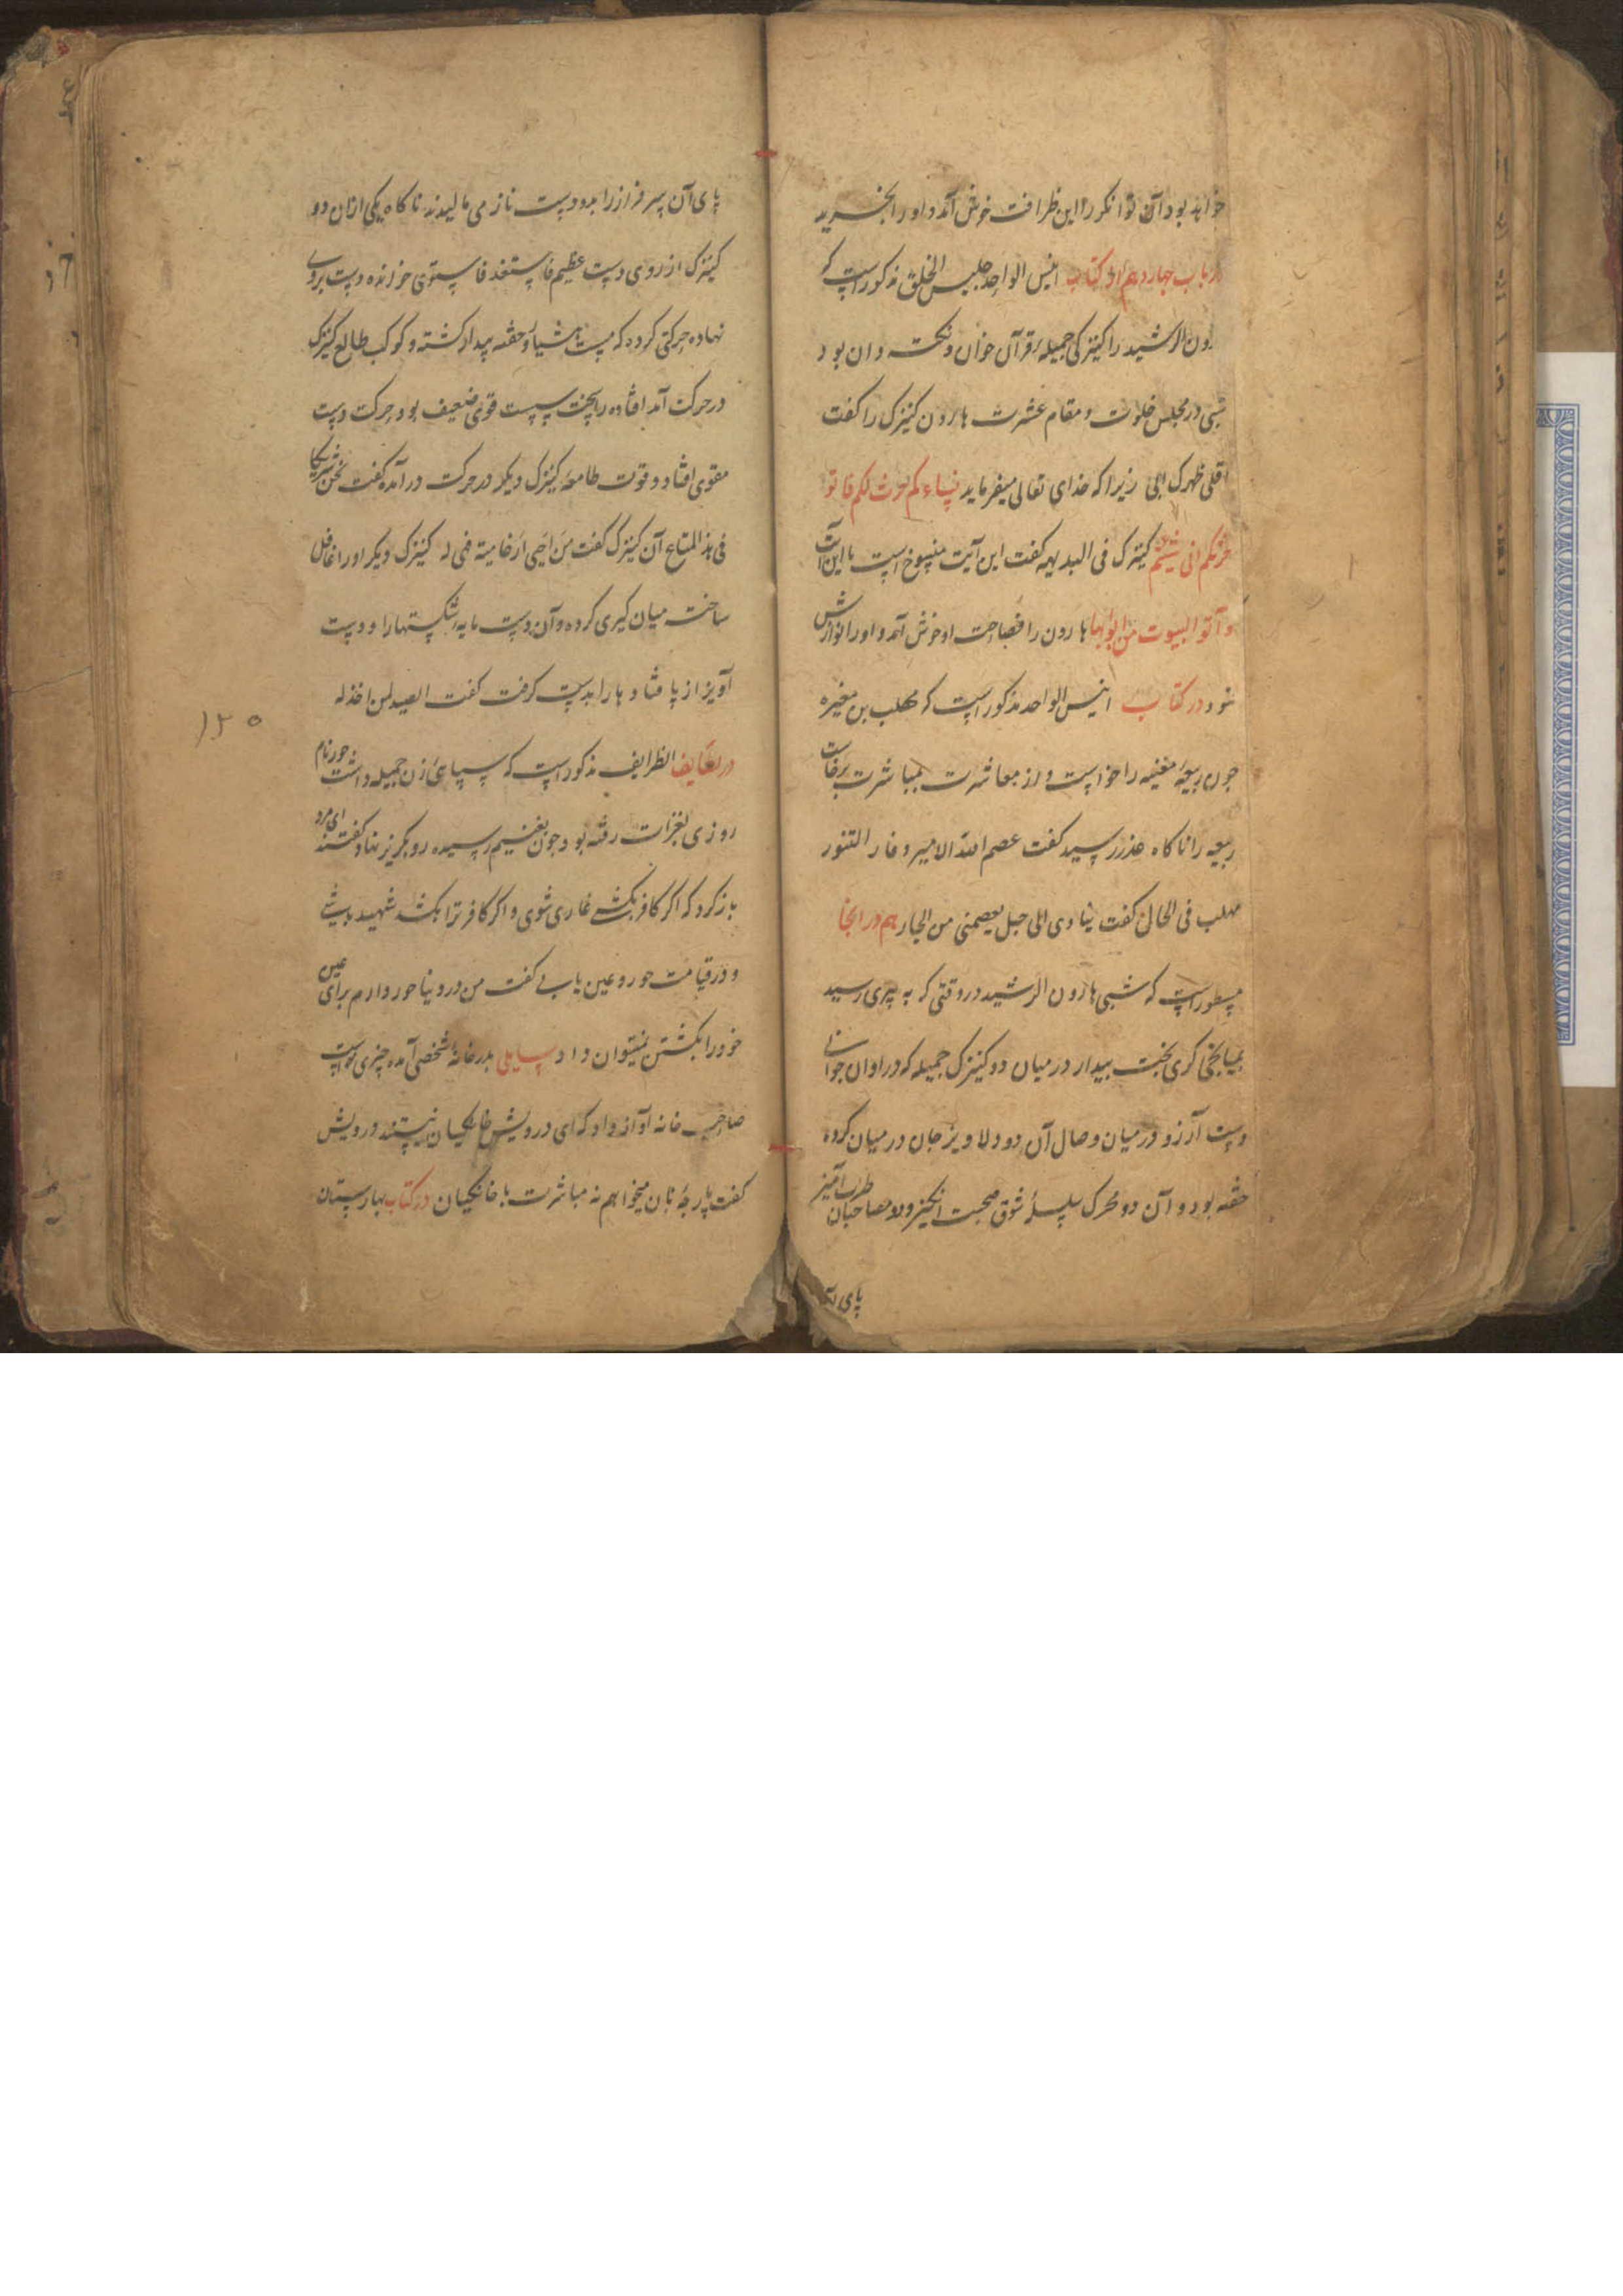 خواهد بود آن توانکر را این ظرافت خوش آمد و او را بخرید
در باب چهاردهم از کتاب انیس الواحد جلیس الخلق مذکور است که
رون الرشید را کنیزکی جمیله قرآن خوان و نکته دان بود
شبی در مجلس خلوت و مقام عشرت هارون کنیزک را کفت
اقلی ظهرک الی زیرا که خدای تعالی میفرماید نساءکم حرث لکم فاتو
حرثکم انی شئتم کنیزک فی البدیهه کفت این آیت منسوخ است با این آیت
و آتو البیوت من ابوابها هارون را فصاحت او خوش آمد و او را نوازش
نمود در کتاب انیس الواحد مذکور است که مهلب بن مغیره
چون ربیعه مغنیه را خواست و از معاشرت بمباشرت برخاست
ربیعه را ناکاه عذر رسید کفت عصم الله الامیر و فار التنور
مهلب فی الحال کفت ساوی الی جبل یعصمنی من الجار هم در انجا
مسطور است که شبی هارون الرشید در وقتی که به پیری رسید
بمیانجی کری بخت بیدار در میان دو کنیزک جمیله که در اوان جوانی
دست آرزو در میان وصال آن دو دلاویز جان در میان کرده
خفته بود و آن دو محرک سلسله شوق صحبت انکیز و دو مصاحبان طرب آمیز
پای آن
پای آن سرفراز را بدو دست ناز می مالیدند ناکاه یکی ازان دو
کنیزک از روی دست عظیم فاستغذ فاستوی خوانده دست بروی
نهاده حرکتی کرده که مست هشیار و خفته بیدار کشته و کوکب طالع کنیزک
در حرکت آمد افتاده را بخت سست قوی ضعیف بود حرکت دست
مقوی افتاد و قوت طامعه کنیزک دیکر در حرکت در آمده کفت نحن شریکا
فی هذ المتاع آن کنیزک کفت من احیی ارضا میتة فهی له کنیزک دیکر او را غافل
ساخته میان کیری کرده و آن دست مایه شکستها را و دست
آویز از پا فتادها را بدست کرفت کفت الصید لمن اخذ له
در لطایف الظرایف مذکور است که سپاهئ زن جمیله داشت حور نام
روزی بغزات رفته بود چون بغنیم رسیده رو بکریز نهاد کفتند ای مرد
باز کرد که اگر کافر بکشی غازی شوی و اکر کافر ترا بکشد شهید باشی
و در قیامت حور و عین یابی کفت من در دنیا حور دارم برای عین
خود را بکشتن نمیتوان داد سایلی بدر خانه شخصی آمده چیزی خواست
صاحب خانه آواز داد که ای درویش خانکیان نیستند درویش
کفت پارچه نان میخواهم نه مباشرت با خانکیان در کتاب بهارستان
۱۲۵